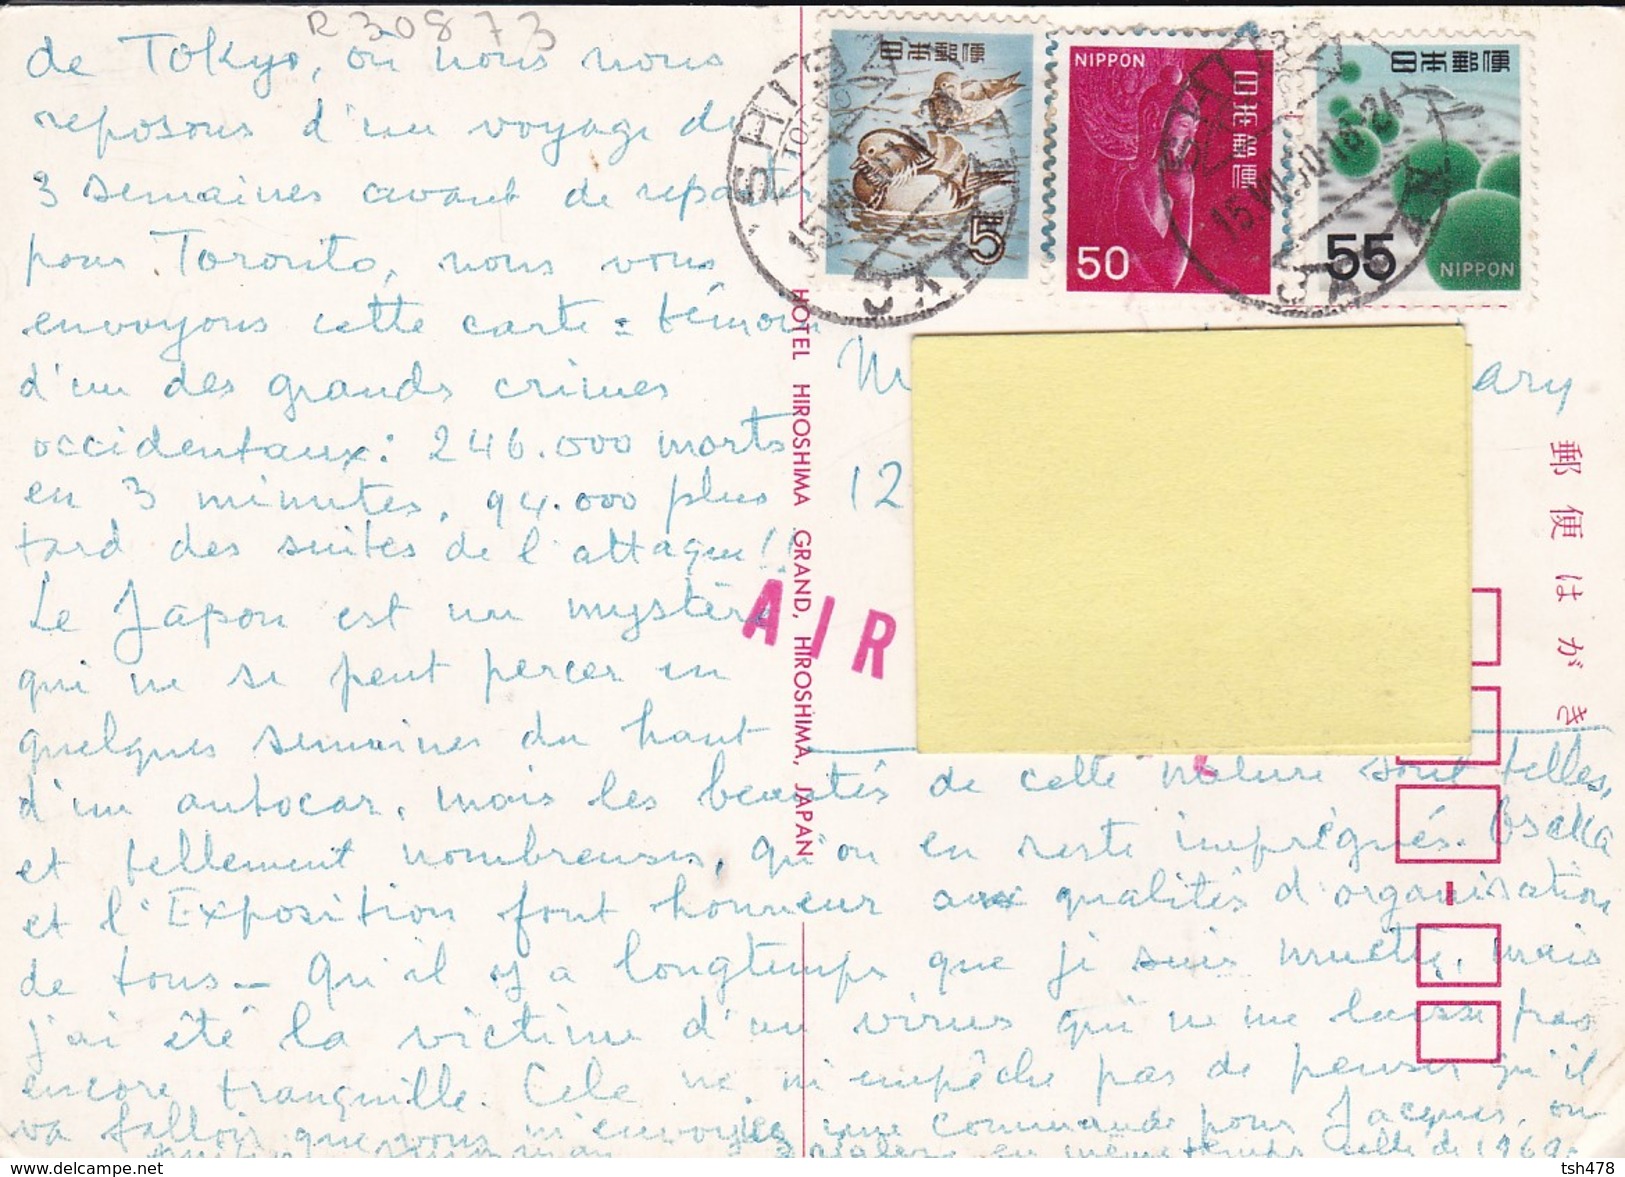 R30873
de Tokyo, où nous nous
reposons d'un voyage de
3 semaines avant de repartir
pour Toronto, nous vous
envoyons cette carte = témoin
d'un des grands crimes
occidentaux: 246.000 morts
en 3 minutes, 94.000 plus
tard des suites de l'attaque!!
Le Japon est un mystère
qui ne se peut percer en
quelques semaines du haut
d'un autocar, mais les beautés de cette nature sont telles,
et tellement nombreuses, qu'on en reste imprégnés. Osaka
et l'Exposition font honneur aux qualités d'organisation
de tous - Qu'il y a longtemps que je suis muette, mais
j'ai été la victime d'un virus qui ne me laisse pas
encore tranquille. Cela ne m'empêche pas de penser qu'il
va falloir que vous m'envoyiez une commande pour Jacques, ou
en même temps celle de 1969.
日本郵便
5
NIPPON
日本郵便
50
日本郵便
55
NIPPON
SHIBUYA
TOKYO
JAPAN
SHIBUYA
JAPAN
M
ary
12
AIR
HOTEL HIROSHIMA GRAND, HIROSHIMA, JAPAN
郵便はがき
tsh478